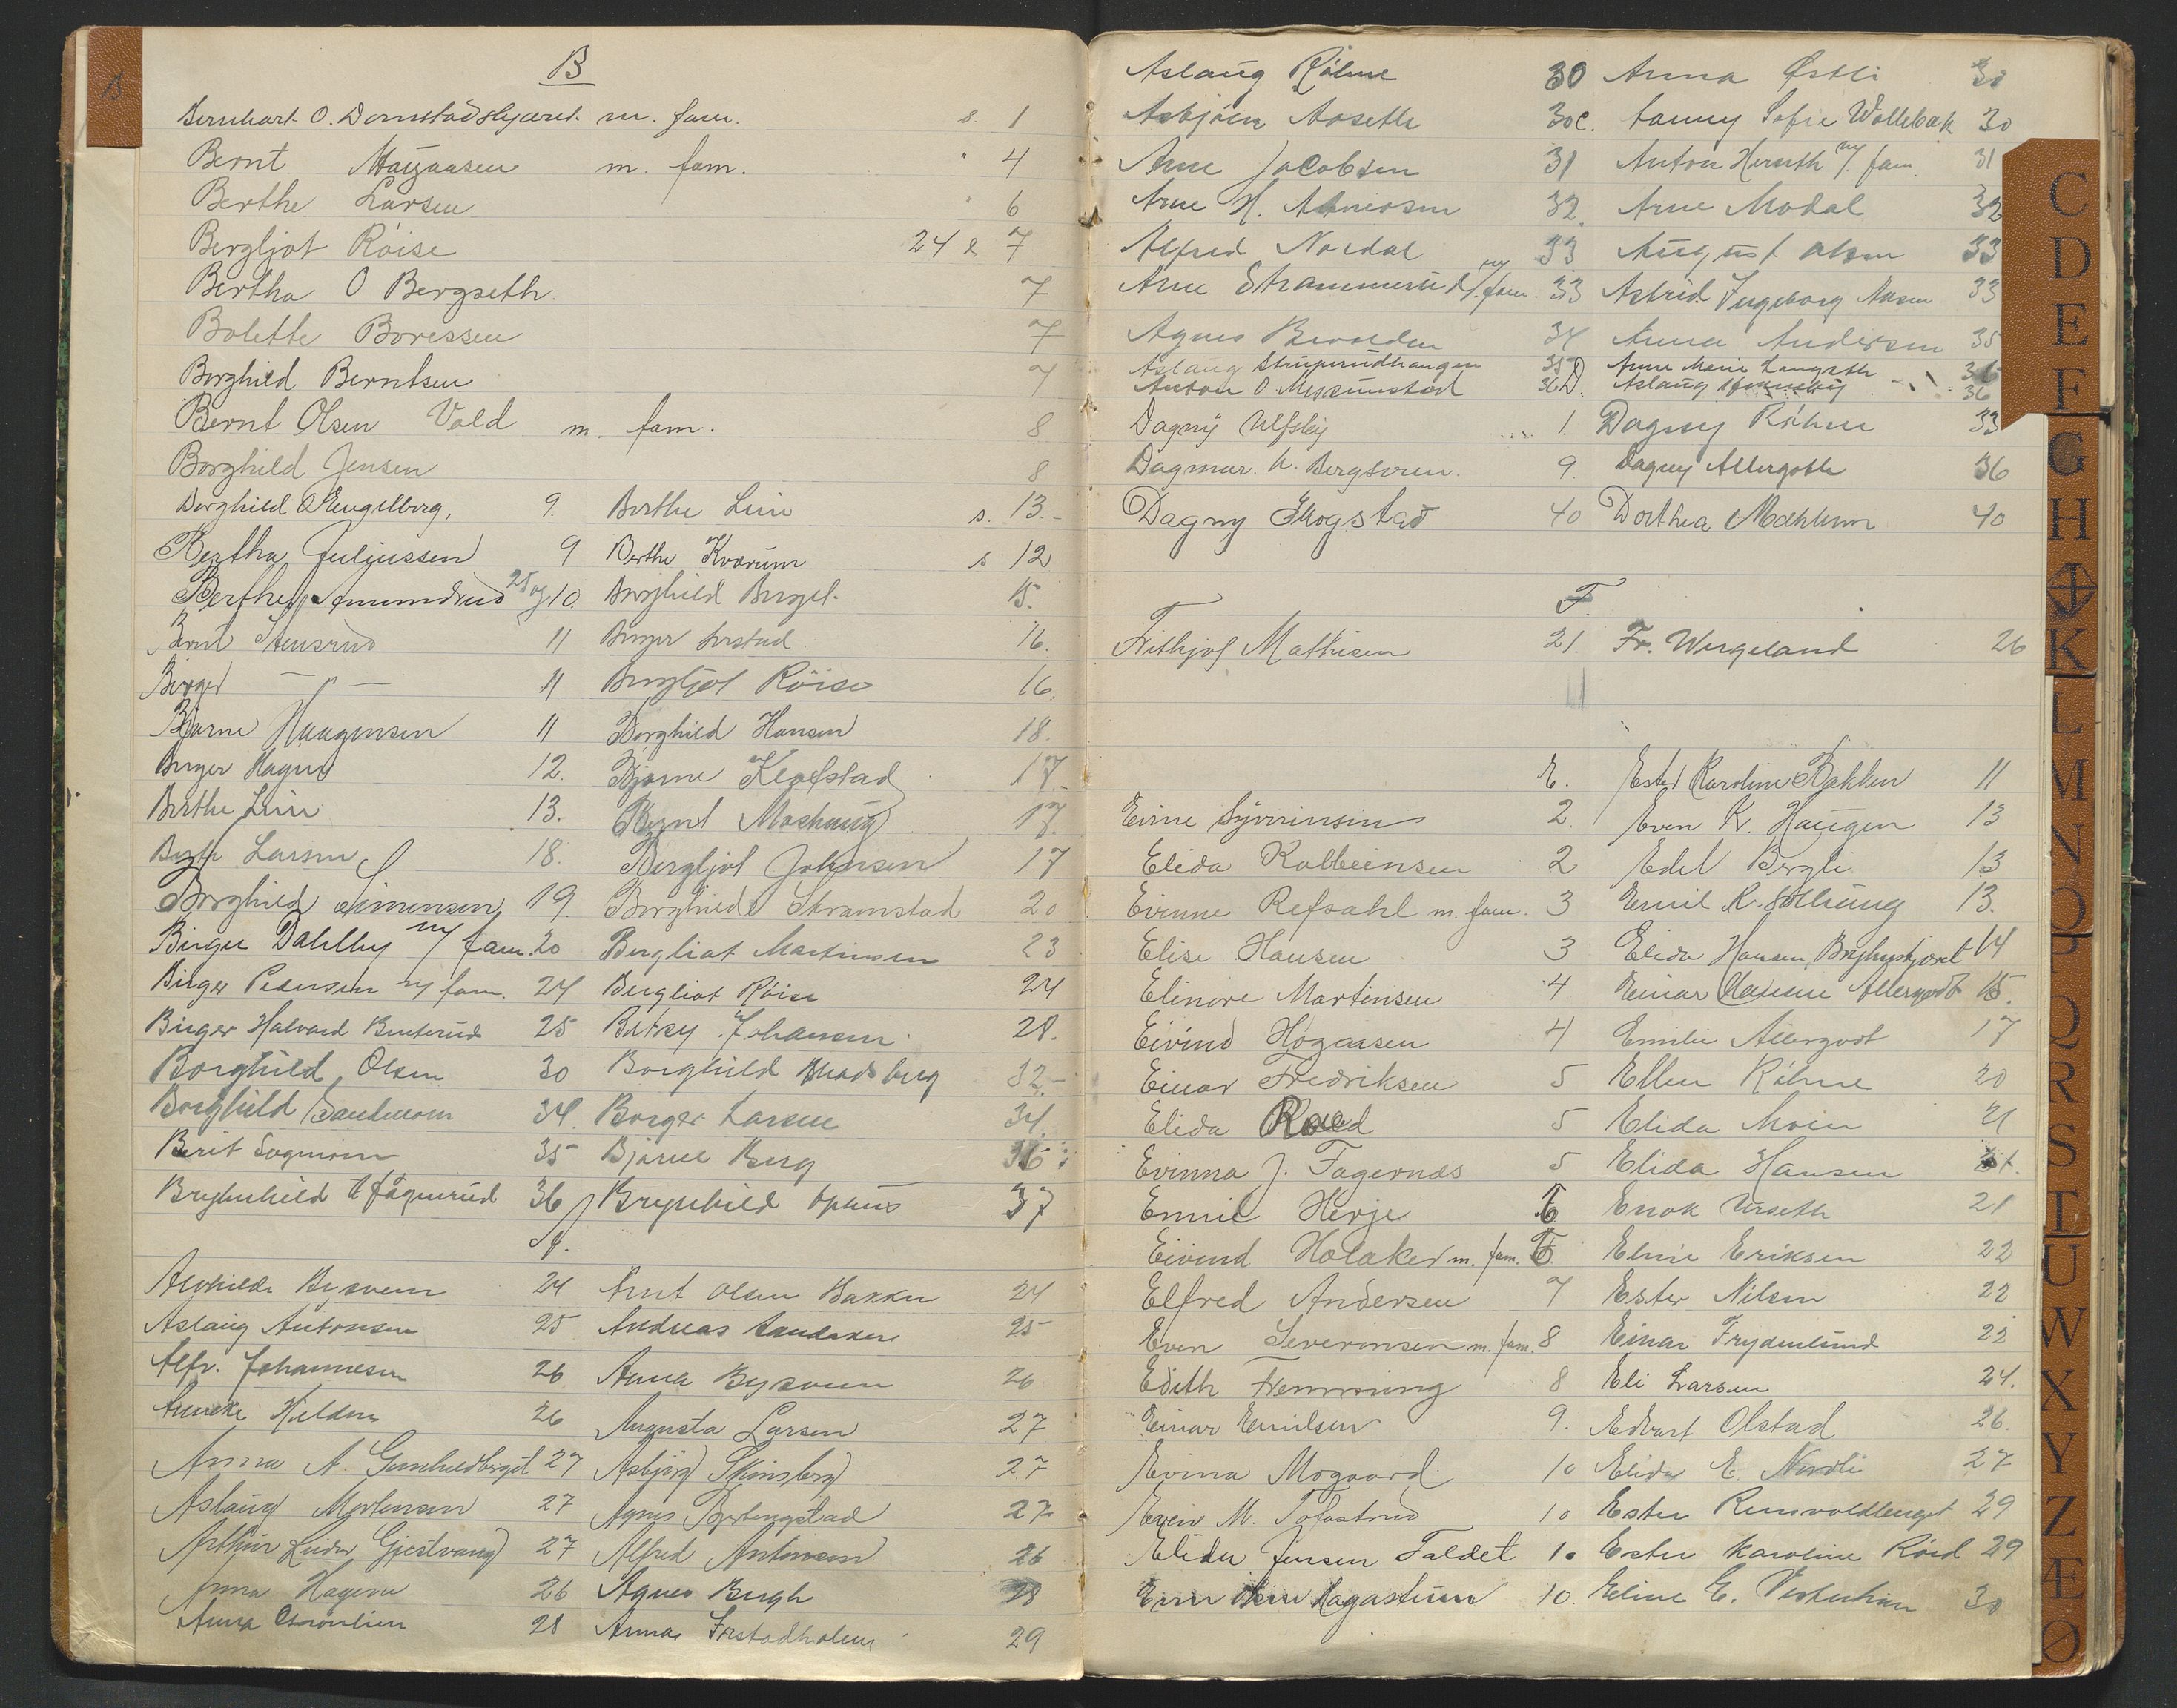 B
B
Bernhart O. Domstadskjæret m. fam. s. 1
Bernt m. fam. " 4
Berthe Larsen " 6
Bergljot Röise 24 & 7
Bertha O Bergseth. 7
Bolette Boressen 7
Borghild Berntsen 7
Bernt Olsen Vold m. fam. 8
Borghild Jensen 8
Borghild O Stengelberg. 9. Berthe Lein s. 13.-
Bertha Juliussen 9 Berthe Kvarum s 12
Berthe Amundrud 25 og 10. Borghild Berget. 15.
Bernt Stensrud 11 Birger 16.
Birger — " — 11 Bergljot Röise 16.
Bjarne Haagensen 11 Borghild Hansen 18.
Birger Hagen 12. Bjarne Klæfstad 17.-
Berthe Lein 13. Bernt Moshaug 17.
Larsen 18. Bergljot Johnsen 17
Borghild Simensen 19. Borghild Skramstad 20
Birger Dahlby m/ fam. 20 Bergliot Martinsen 23
Birger Pedersen m/ fam. 24 Bergliot Röise 24
Birger Halvard 25 Betzy Johansen 28.
Borghild Olsen 30 Borghild 32.-
Borghild Sandmoen 34. Borger Larsen 34.
Berit Sogmoen 35 Bjarne Berg 36
Brynhild 36 Brynhild Ophus 37
A.
Alvhilde Bysveen 24 Arnt Olsen Bakken 24
Aslaug Antonsen 25 Andreas Sandaker 25
Alfr. Johannesen 26 Anna Bysveen 26
Kilden 26 Augusta Larsen 27
Anna A. Gunhildberget 27 Asbjørg Skinsberg 27
Aslaug Mortensen 27 Agnes 27
Arthur Gjestvang 27 Alfred Antonsen 26
Anna Hagen 26 Agnes Bergh 28
Anna 28 Anna Frestadholen 29
Aslaug Röhne 30 Anna Østli 30
Asbjörn Aaseth 30 C. Sofie Wollebæk 30
Arne Jacobsen 31 Anton m/. fam. 31
Arne H. 32. Arne Modal 32
Alfred Nordal 33 August Olsen 33
Arne Strammerud m/. fam. 33 Astrid Ingeborg 33
Agnes 34 Anna Andersen 35
Aslaug 35 Anne Marie 36
Anton O. 36 D. Aslaug 36
Dagny Ulfsby 1. Dagny Röhne 33
Dagmar. H. Bergsveen. 9. Dagny Allergodt 36
Dagny Skogstad 40 Dorthea Mæhlum 40
F.
Frithjof Mathisen 21. Fr. Wergeland 26
E. Ester Karoline Bakken 11
2. Even K. Haugen 13
Elida Kolbeinsen 2 Edel Bergli 13
Evinne Refsahl m. fam. 3 Emil K. Solhaug 13.
Elise Hansen 3 Elida Hansen, 14
Elinore Martinsen 4 Einar Allergodt 15.
Eivind 4 Emilie Allergodt 17
Einar Fredriksen 5 Ellen Röhne 20
Elida Roed 5 Elida Moen 21
Evinna J. Fagernæs 5 Elida Hansen 21.
Emil Herje 6 Enok Urseth 21
Eivind Holaker m. fam. 6 Elmie Eriksen 22
Elfred Andersen 7 Ester Nilsen 22
Even Severinsen m. fam. 8 Einar Frydenlund 22
Edith Flemming 8 Eli Larsen 24.
Einar Emilsen 9. Edvart Olstad 26.
Evina Mogaard 10 Elida E. Nordli 27
Even M. Tofastrud 10 Ester 29
Elida Jensen Faldet 10 Ester Karoline Röed 29
10. Eline E. 30
C
D
E
F
G
H
IJ
K
L
M
N
O
P
Q
R
S
T
U
W
X
Y
Z
Æ
Ø